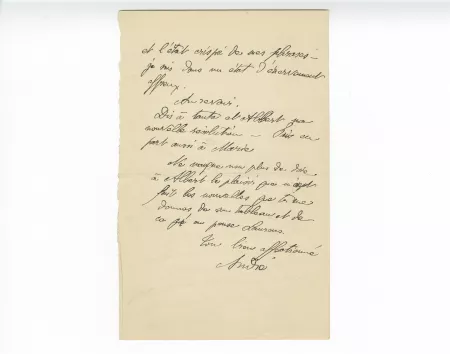 et l'état crispé de mes phrases –
je suis dans un état d'énervement
affreux.
Au revoir.
Dis à tante et Albert ma
nouvelle résolution –
part aussi à Marie
Ne manque non plus de dire
à Albert le plaisir que m'ont
fait les nouvelles que tu me
donnes de son tableau et de
ce qu'en pense Laurens.
Ton bien affectionné
André